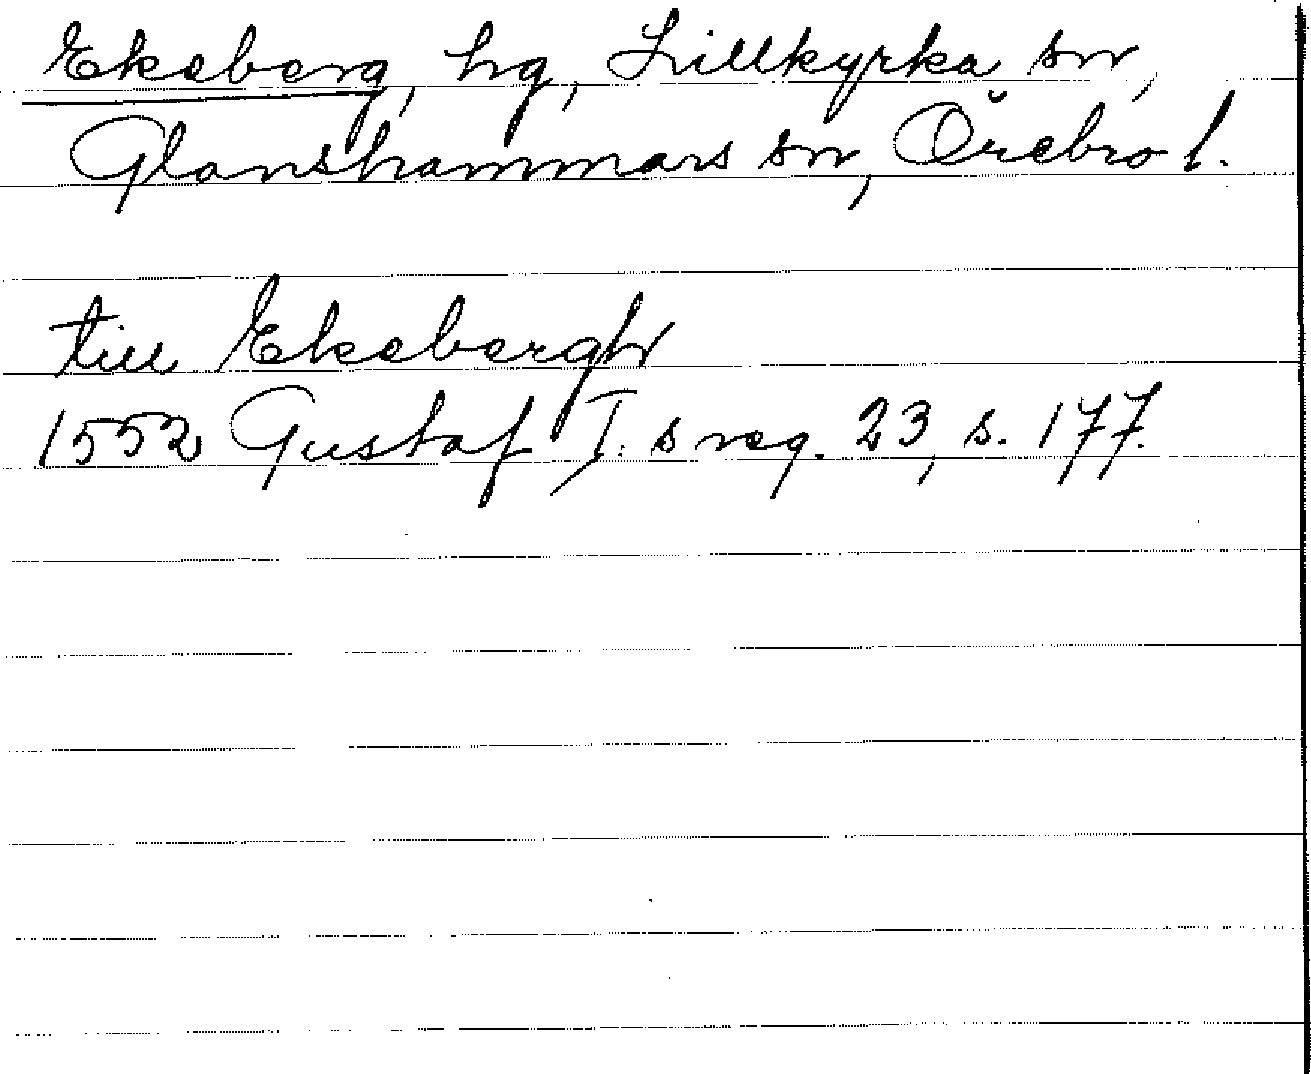 Ekeberg, hg, Lillkyrka sn,
Glanshammars sn, Örebro l.
till Ekebergh
1552 Gustaf I:s reg. 23, s. 177.